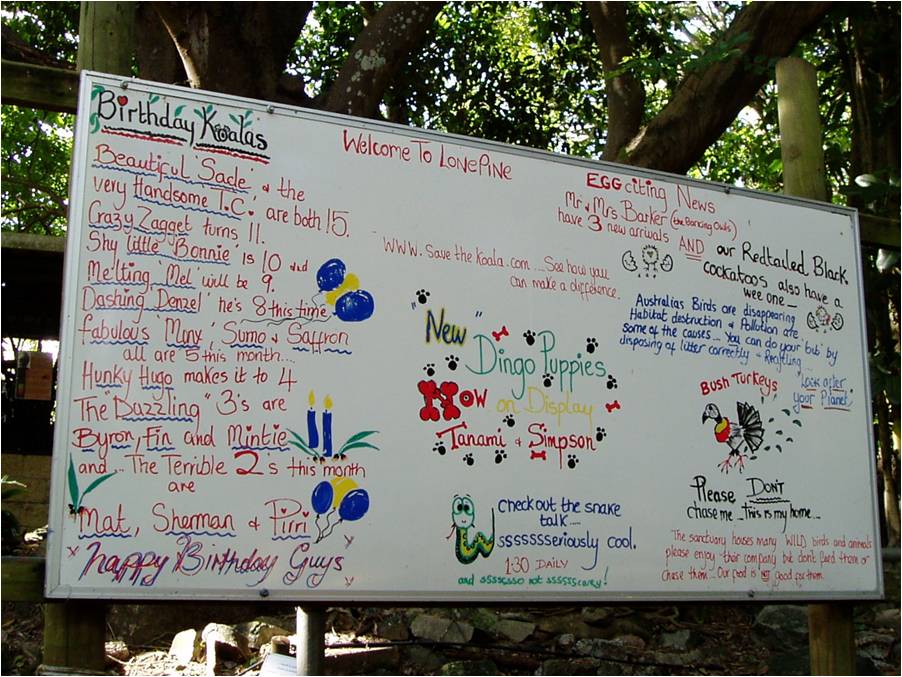 Birthday Koalas
Beautiful 'Sade' & the
very Handsome T.C. are both 15.
Crazy Zagget turns 11.
Shy little 'Bonnie' is 10 and
Melting 'Mel' will be 9.
Dashing Denzel' he's 8 this time
fabulous 'Many', Sumo & Saffron
all are 5 this month...
Hunky Hugo makes it to 4
The "Dazzling" 3's are
Byron, Fin and Mintie
and... The Terrible 2's this month
are
Mat, Sherman & Pirri
happy Birthday Guys
Welcome To LONEPINE
www.save the koala.com ....See how you
can make a difference.
"New"
Dingo Puppies
Now on Display
Tanami & Simpson
Check out the snake
talk....
ssssssseriously cool.
1:30 DAILY
and ssssssso not ssssscarey!
EGGciting News
Mr & Mrs Barker (the Dancing Owls)
have 3 new arrivals AND
our Redtailed Black
cockatoos also have a
wee one...
Australias Birds are disappearing
Habitat destruction & Pollution are
some of the causes... You can do your 'bit' by
disposing of litter correctly & Recycling...
"Look after
your Planet"
Bush Turkeys
Please DON'T
chase me...This is my home...
The sanctuary houses many WILD birds and animals
please enjoy their company but don't feed them or
chase them... Our food is NOT good for them.